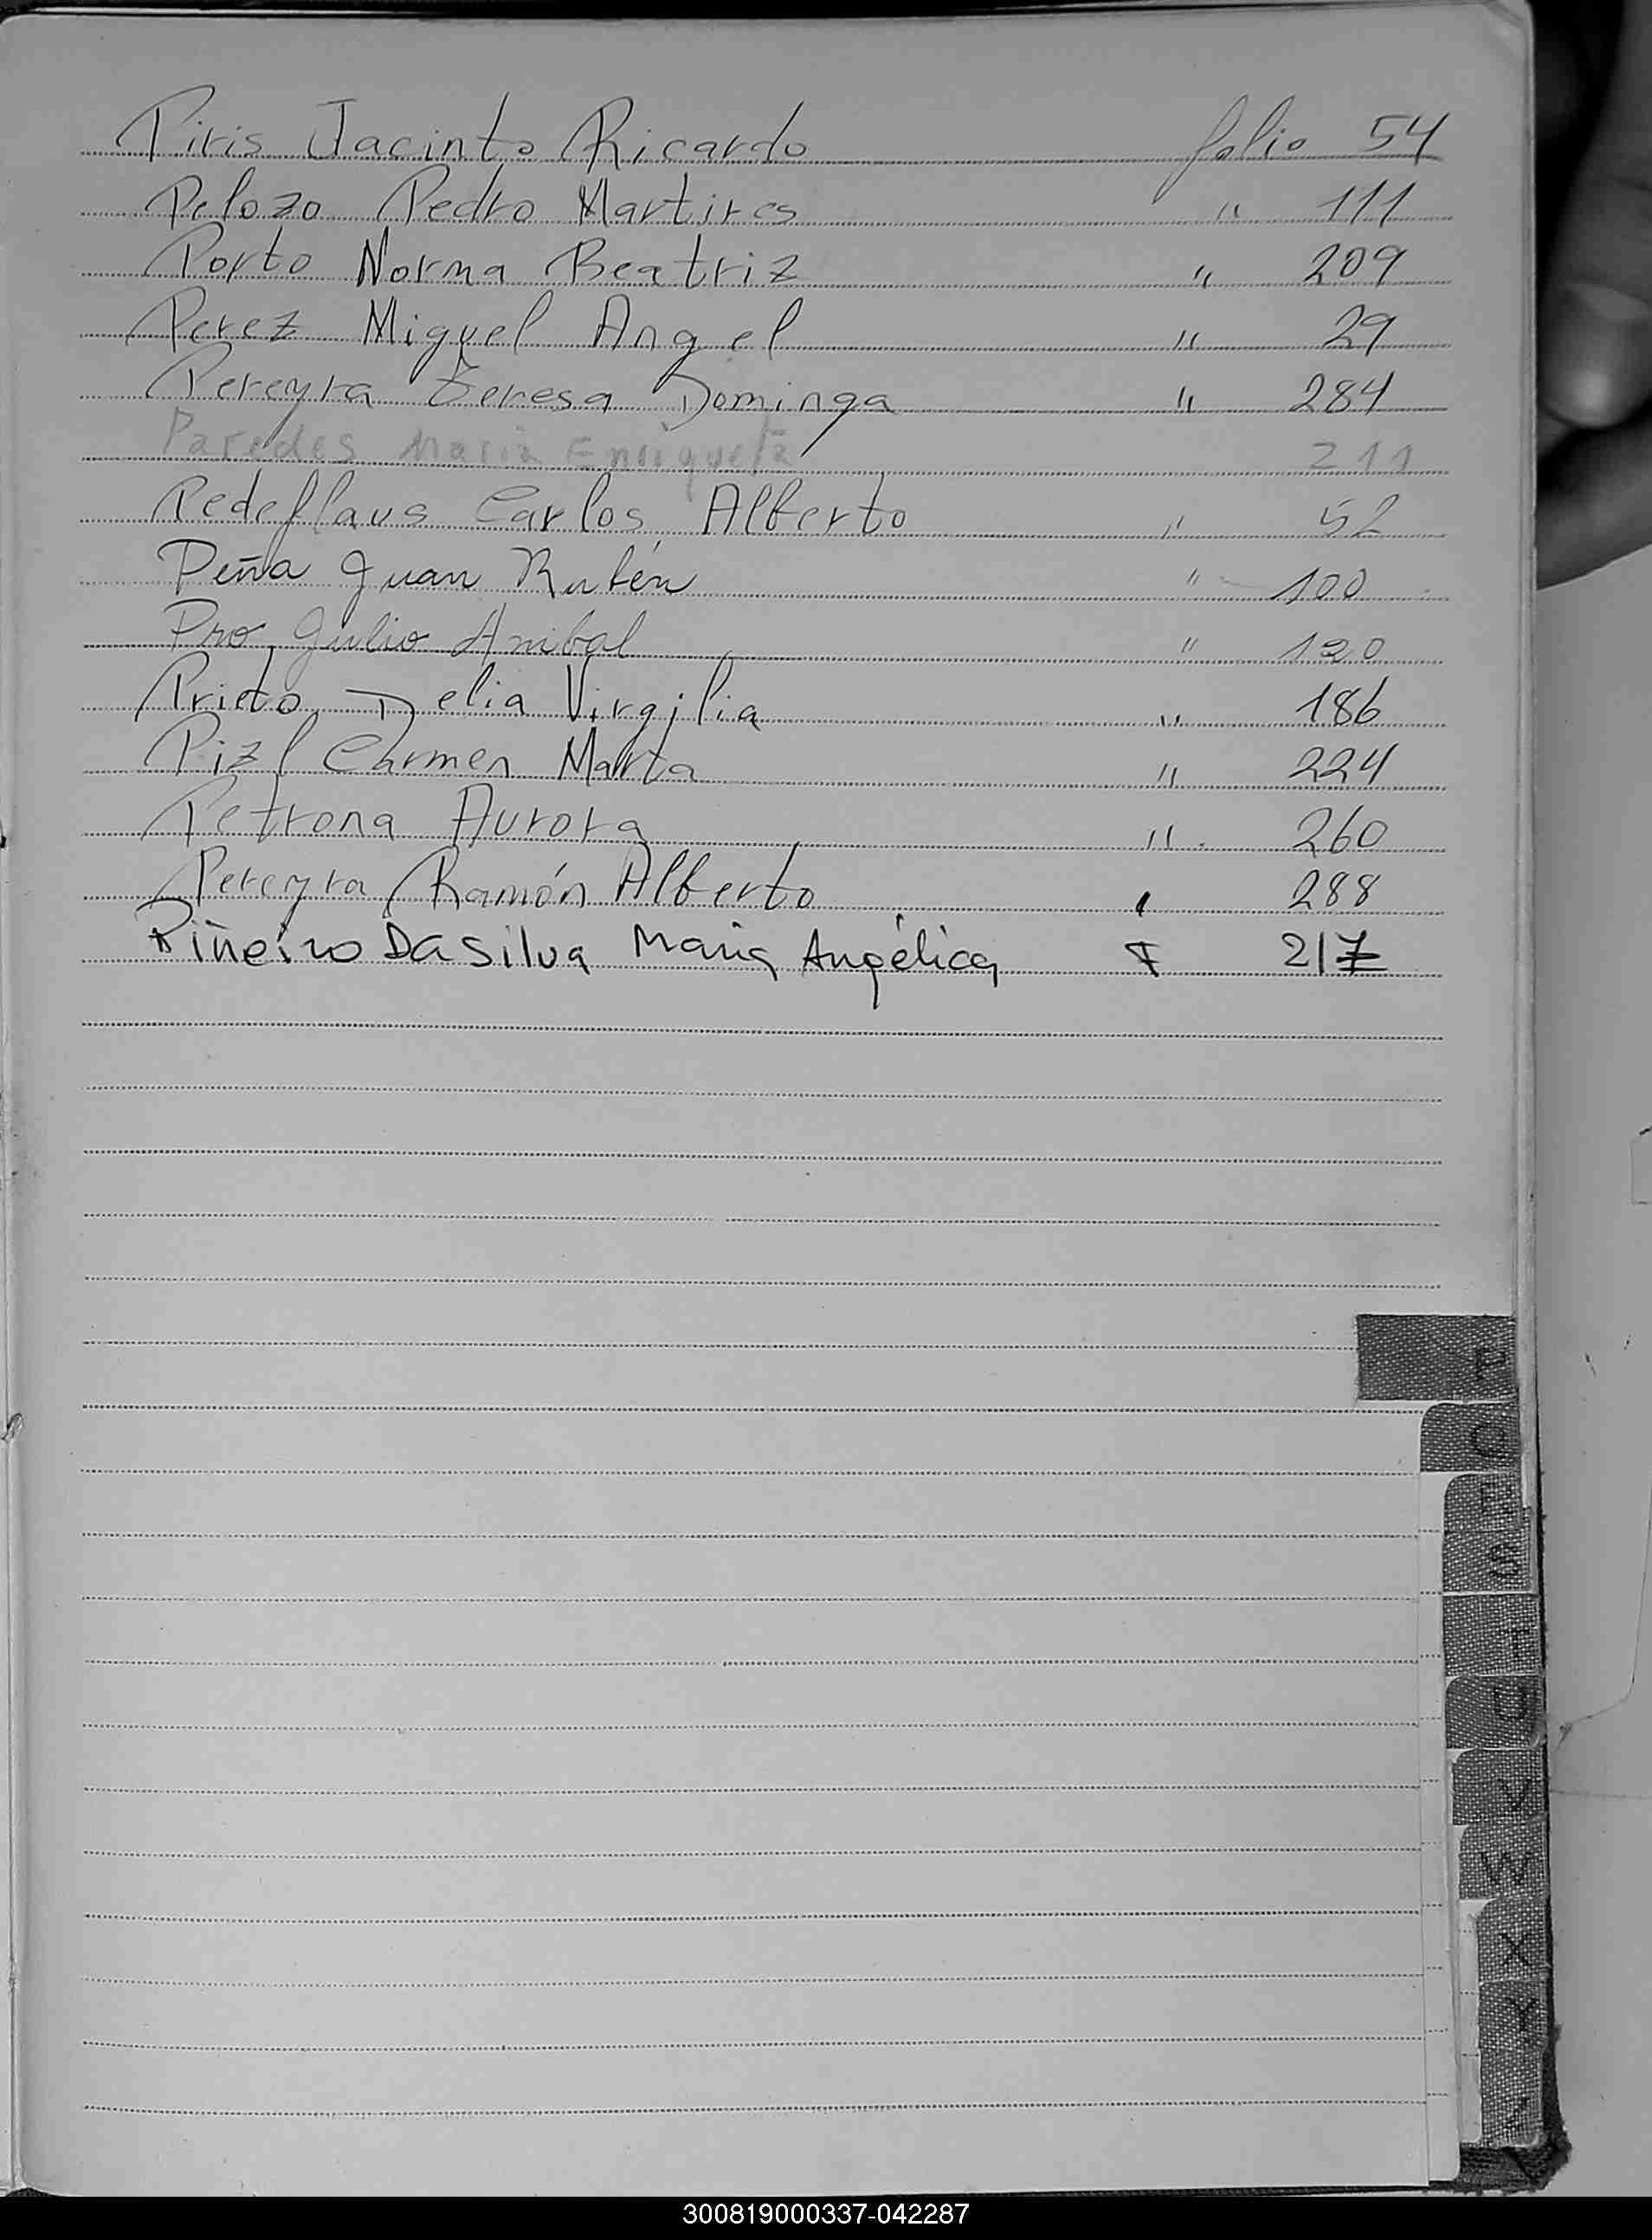 Piris Jacinto Ricardo folio 54
Pelozo Pedro Martires " 111
Porto Norma Beatriz " 209
Perez Miguel Angel " 29
Pereyra Teresa Dominga " 284
Paredes Maria Enriqueta 211
Pedeflaus Carlos Alberto " 52
Peña Juan Rubén " 100
Pro Julio Anibal " 120
Prieto Delia Virgilia " 186
Pizl Carmen Marta " 224
Petrona Aurora " 260
Pereyra Ramón Alberto " 288
Piñeiro Dasilva Maria Angélica F 217
P
Q
R
S
T
U
V
W
X
Y
Z
300819000337-042287